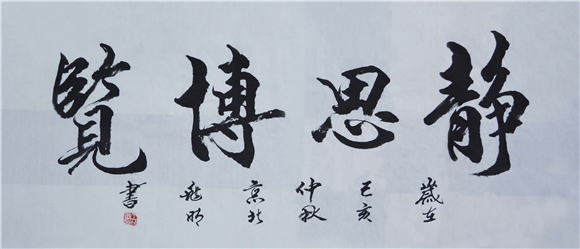 静思博覽
歲在己亥仲秋京北明書